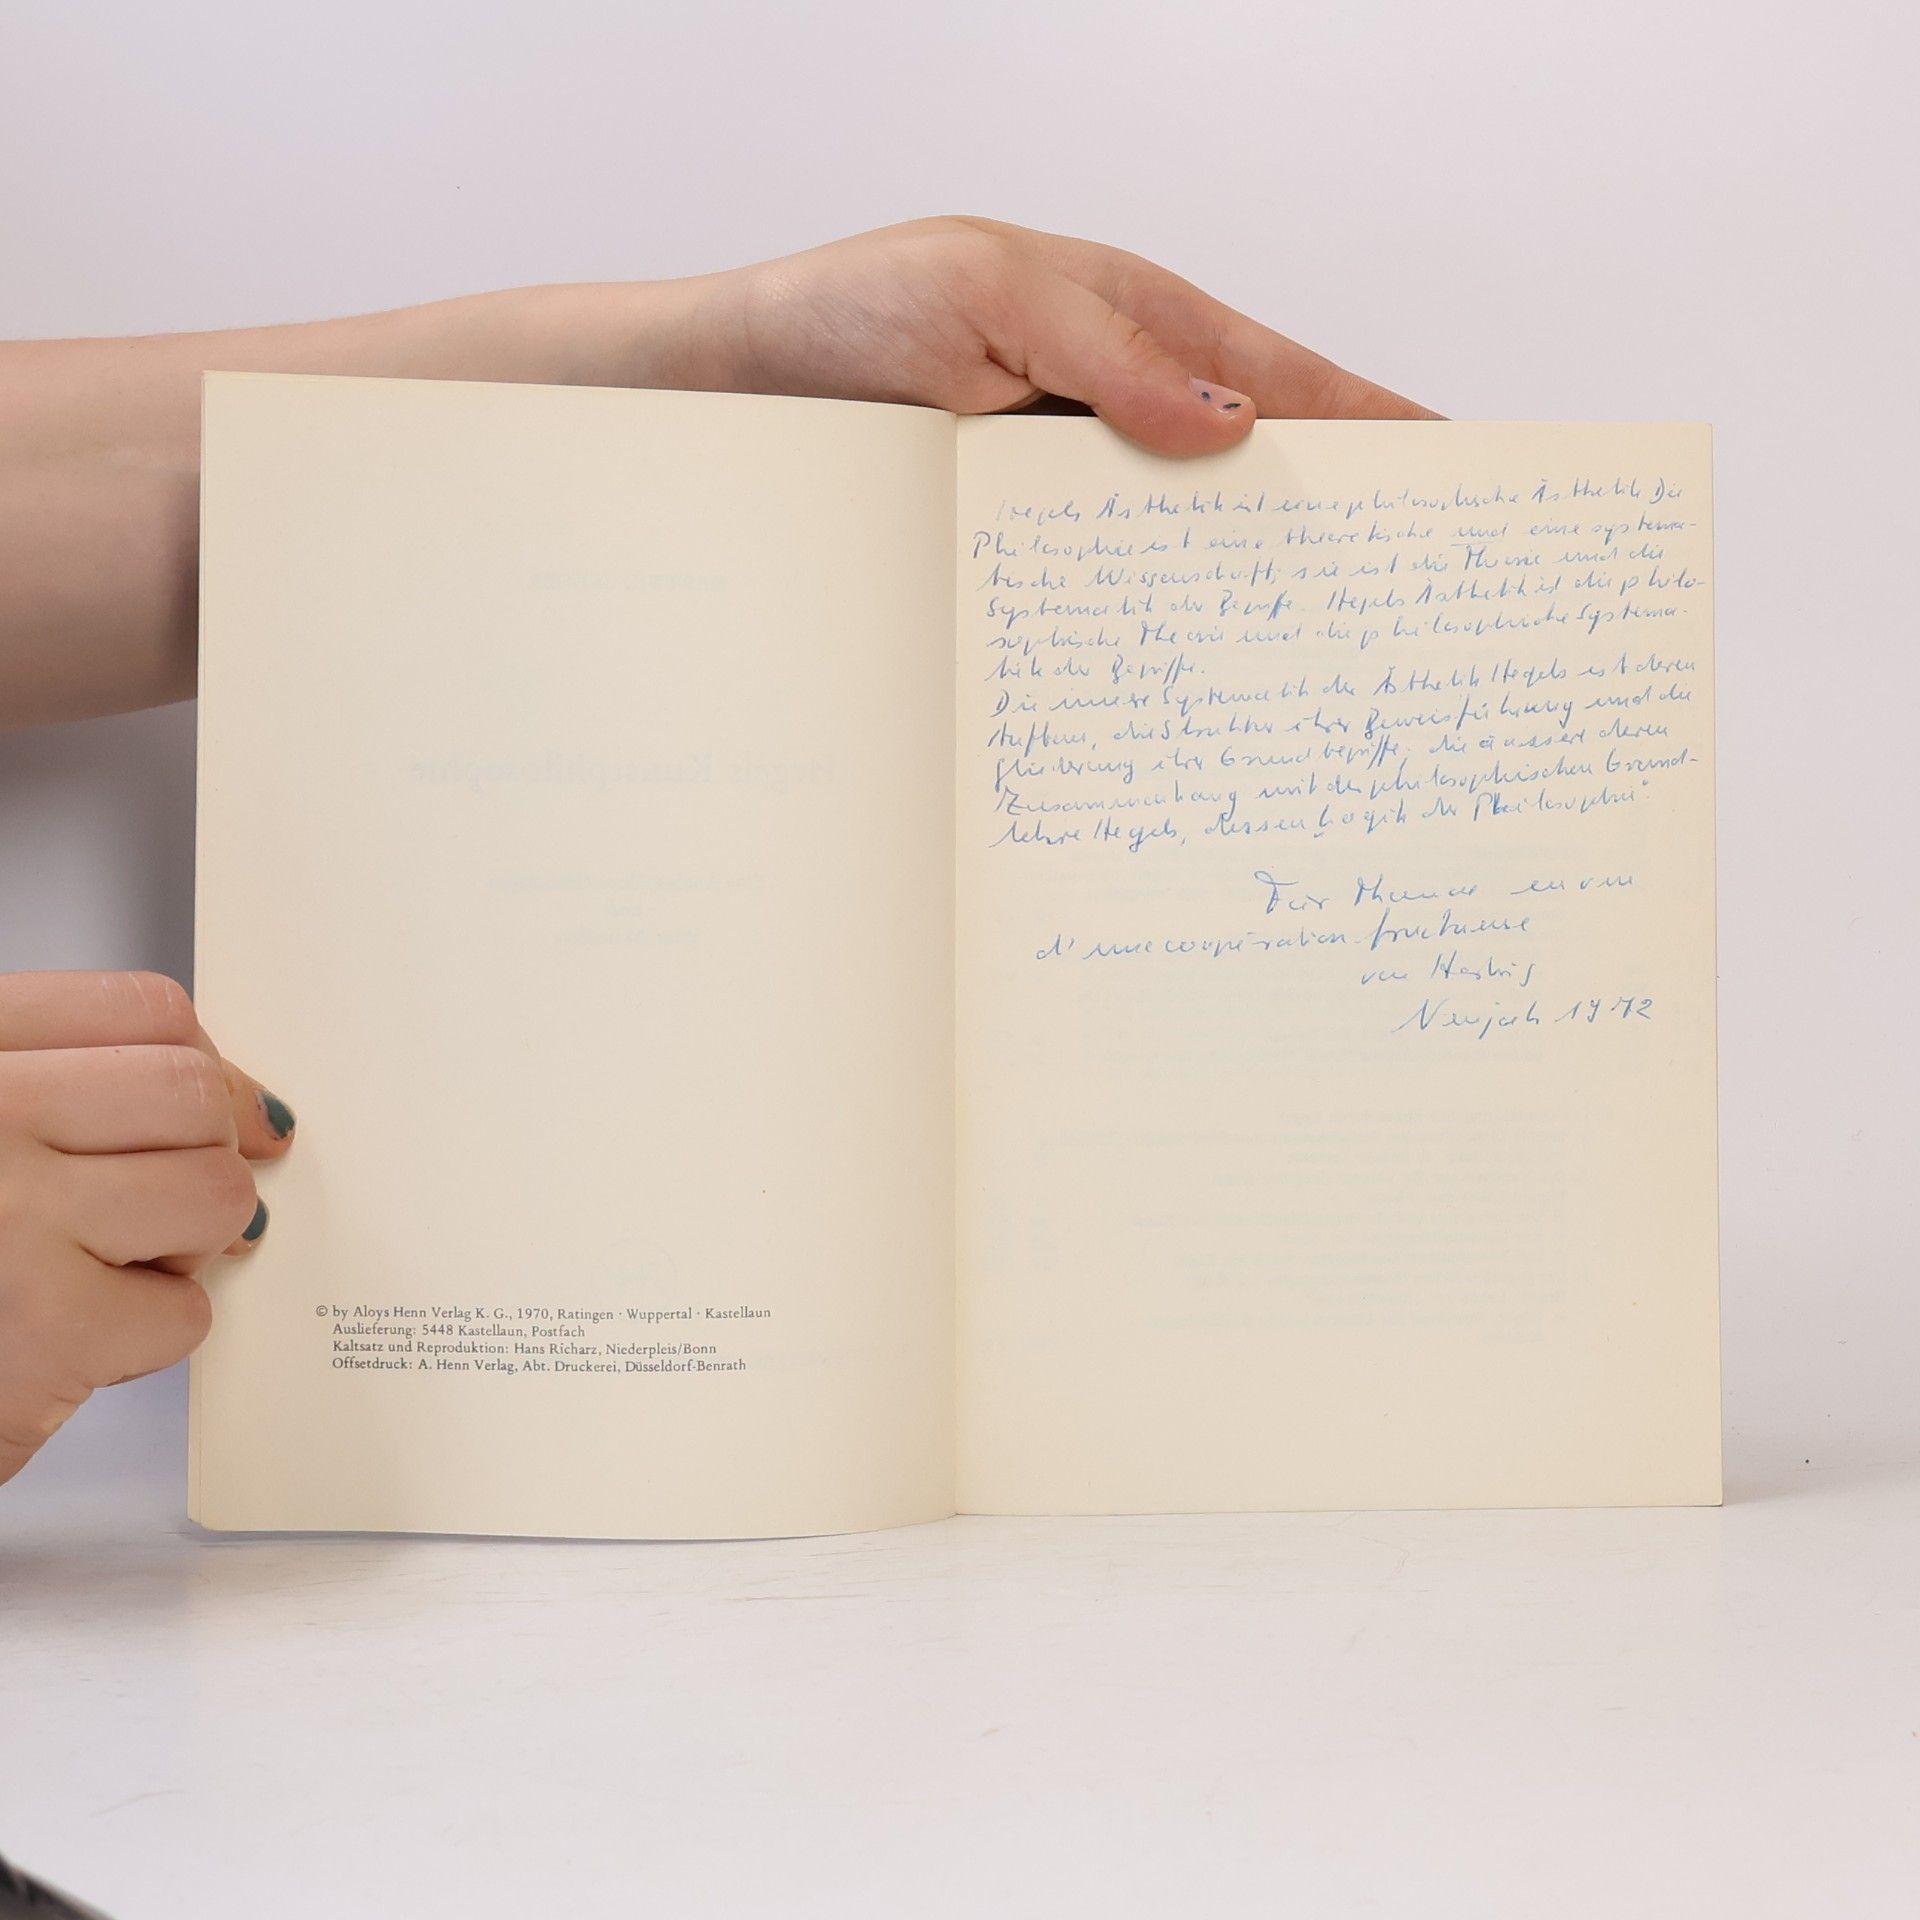 © by Aloys Henn Verlag K. G., 1970, Ratingen · Wuppertal · Kastellaun
Auslieferung: 5448 Kastellaun, Postfach
Kaltsatz und Reproduktion: Hans Richarz, Niederpleis/Bonn
Offsetdruck: A. Henn Verlag, Abt. Druckerei, Düsseldorf-Benrath
Hegels Ästhetik ist eine philosophische Ästhetik. Die
Philosophie ist eine theoretische und eine systema-
tische Wissenschaft; sie ist die Theorie und die
Systematik der Begriffe. Hegels Ästhetik ist die philo-
sophische Theorie und die philosophische Systema-
tik der Begriffe.
Die innere Systematik der Ästhetik Hegels ist deren
Aufbau, die Struktur ihrer Beweisführung und die
Gliederung ihrer Grundbegriffe; die äussere deren
Zusammenhang mit der philosophischen Grund-
lehre Hegels, dessen Logik der Philosophie".
Für en vue
d'une coopération fructueuse
von Hartwig
Neujahr 1972